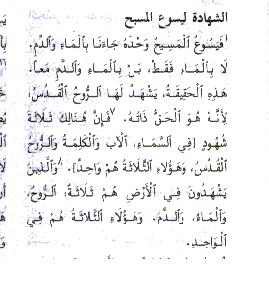 الشهادة ليسوع المسيح
٦فَيَسُوعُ ٱلْمَسِيحُ وَحْدَهُ جَاءَنَا بِٱلْمَاءِ وَٱلدَّمِ.
لَا بِٱلْمَاءِ فَقَطْ، بَلْ بِٱلْمَاءِ وَٱلدَّمِ مَعاً.
هَذِهِ ٱلْحَقِيقَةُ، يَشْهَدُ لَهَا ٱلرُّوحُ ٱلْقُدُسُ،
لِأَنَّهُ هُوَ ٱلْحَقُّ ذَاتُهُ. ٧فَإِنَّ هُنَالِكَ ثَلَاثَةَ
شُهُودٍ [فِي ٱلسَّمَاءِ، ٱلْآبُ وَٱلْكَلِمَةُ وَٱلرُّوحُ
ٱلْقُدُسُ، وَهَؤُلَاءِ ٱلثَّلَاثَةُ هُمْ وَاحِدٌ]. ٨وَٱلَّذِينَ
يَشْهَدُونَ فِي ٱلْأَرْضِ هُمْ ثَلَاثَةٌ، ٱلرُّوحُ،
وَٱلْمَاءُ، وَٱلدَّمُ. وَهَؤُلَاءِ ٱلثَّلَاثَةُ هُمْ فِي
ٱلْوَاحِدِ.